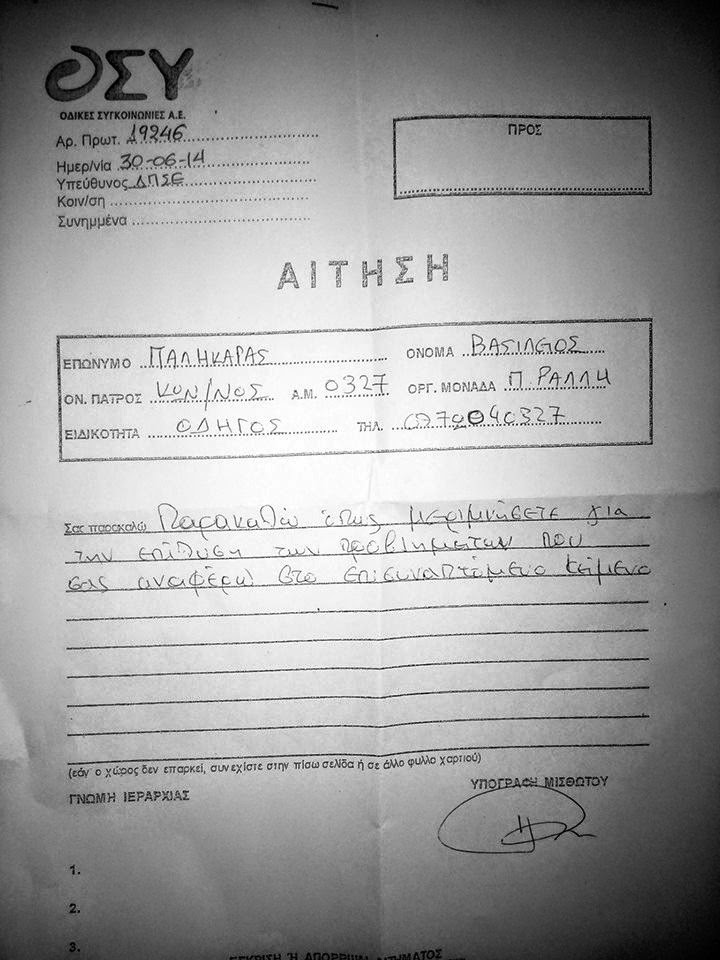 ΟΣΥ
ΟΔΙΚΕΣ ΣΥΓΚΟΙΝΩΝΙΕΣ Α.Ε.
Αρ. Πρωτ. 19246
Ημερ/νία 30-06-14
Υπεύθυνος ΔΠΣΕ
Κοιν/ση
Συνημμένα
ΠΡΟΣ
ΑΙΤΗΣΗ
ΕΠΩΝΥΜΟ ΠΑΛΗΚΑΡΑΣ ΟΝΟΜΑ ΒΑΣΙΛΕΙΟΣ
ΟΝ. ΠΑΤΡΟΣ ΚΩΝ/ΝΟΣ Α.Μ. 0327 ΟΡΓ. ΜΟΝΑΔΑ Π. ΡΑΛΛΗ
ΕΙΔΙΚΟΤΗΤΑ ΟΔΗΓΟΣ ΤΗΛ. 6970040327
Σας παρακαλώ Παρακαλώ όπως μεριμνήσετε για
την επίλυση των προβλημάτων που
σας αναφέρω στο επισυναπτόμενο κείμενο
(εάν ο χώρος δεν επαρκεί, συνεχίστε στην πίσω σελίδα ή σε άλλο φυλλο χαρτιού)
ΓΝΩΜΗ ΙΕΡΑΡΧΙΑΣ ΥΠΟΓΡΑΦΗ ΜΙΣΘΩΤΟΥ
1.
2.
3.
ΕΓΚΡΙΣΗ Ή ΑΠΟΡΡΙΨΗ ΑΙΤΗΜΑΤΟΣ